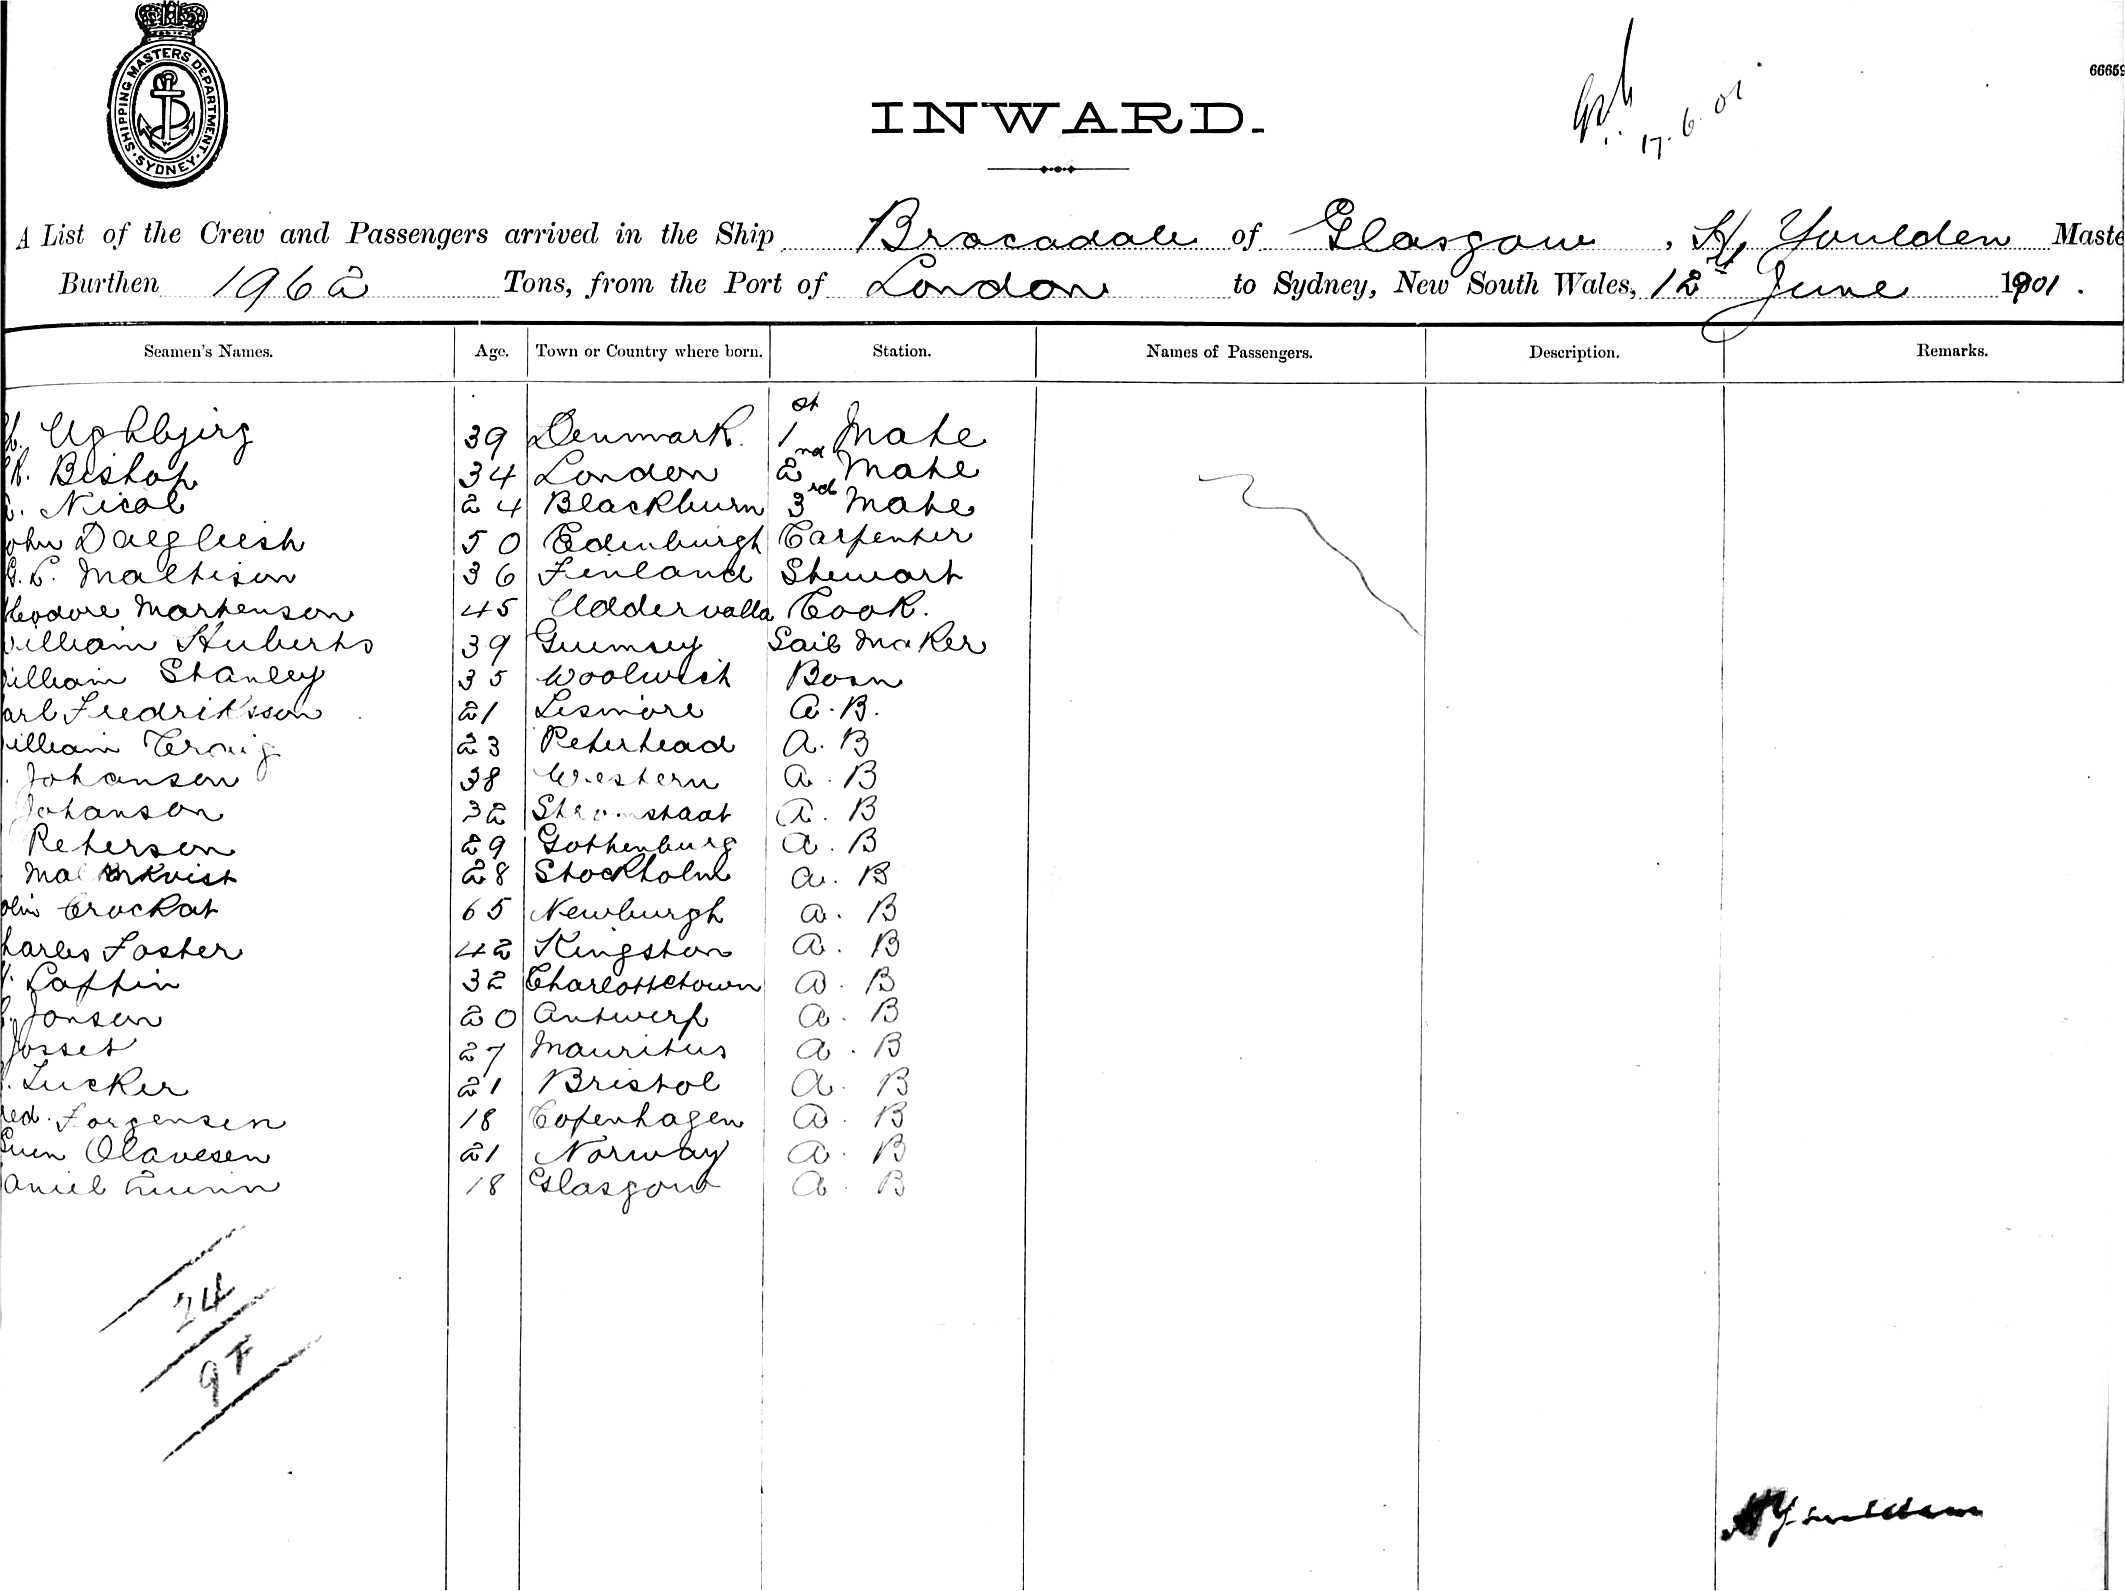 SHIPPING MASTERS DEPARTMENT. SYDNEY
66659
INWARD.
17.6.01
A List of the Crew and Passengers arrived in the Ship Bracadale of Glasgow, H. Youlden Maste
Burthen 1962 Tons, from the Port of London to Sydney, New South Wales, 12th June 1901.
Seamen's Names. Age. Town or Country where born. Station. Names of Passengers. Description. Remarks.
39 Denmark. 1st Mate
Bishop 34 London 2nd Mate
Nicol 24 Blackburn 3rd Mate
ohn Dalgliesh 50 Edinburgh Carpenter
Mattison 36 Finland Stewart
heodore Martenson 45 Uddervalla Cook.
William Huberts 39 Guernsey Sail Maker
William Stanley 35 Woolwich Bosn
arl Fredriksson 21 Lismore A.B.
William Craig 23 Peterhead A.B
Johansen 38 Western A.B
Johanson 32 Stromstaat A.B
Peterson 29 Gothenburg A.B
28 Stockholm A.B
olin Crockat 65 Newburgh A.B
harles Foster 42 Kingston A.B
Laffin 32 Charlottetown A.B
Jonsen 20 Antwerp A.B
Josset 27 Mauritus A.B
Tucker 21 Bristol A.B
red. Jorgensen 18 Copenhagen A.B
Sven Olavesen 21 Norway A.B
aniel Quinn 18 Glasgow A.B
24
9F
H Youlden